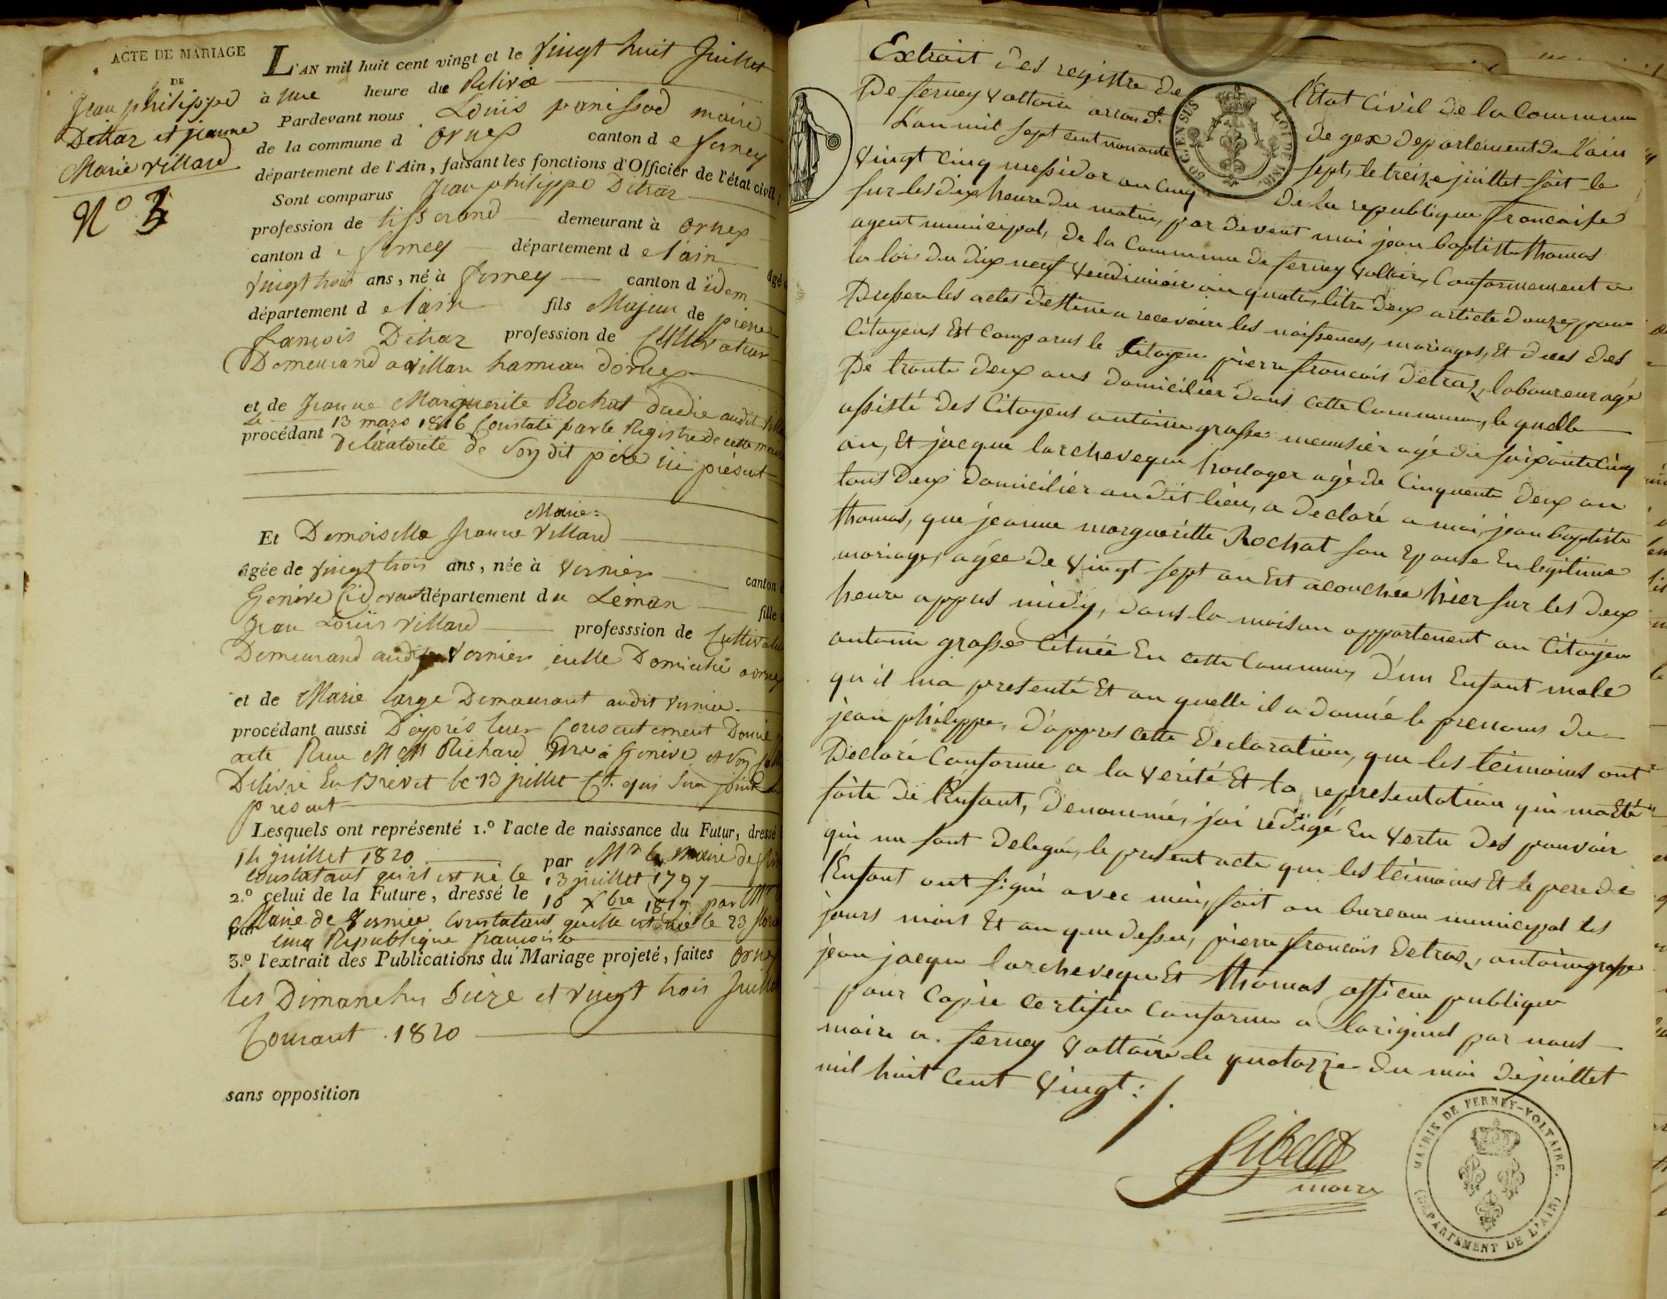 ACTE DE MARIAGE
DE
Jean philippe
Détraz et jeanne
Marie Villard
N° 3
L'AN mil huit cent vingt et le vingt huit Juillet
à une heure du Relivé
Pardevant nous Louis panissod maire
de la commune d'ornex canton de ferney
département de l'Ain, faisant les fonctions d'Officier de l'état civil
Sont comparus Jean philippe Détraz
profession de tisserand demeurant à ornex
canton de ferney département de l'ain
âgé
vingt trois ans, né à ferney canton d idem
département de l'ain fils Majeur de pierre
francois Détraz profession de Cultivateur
Demeurand a villar hameau d'ornex
et de Jeanne Marguerite Rochat audit
Le 13 mars 1816 Constaté par le Registre de cette
procédant De l'autorité de Son dit père ici présent
Et Demoiselle Jeanne Marie Villard
âgée de vingt trois ans, née à Vernier canton
Genève Cidevant département du Léman fille
Jean Louis Villard professsion de Cultivateur
Demeurand audit Vernier icelle Domiciliée a ornex
et de Marie large Demeurant audit Vernier
procédant aussi D'après leur Consentement Donné
acte Reçu Me Richard à Genève
Délivré En Brevet le 13 juillet Ct. qui Sera joint
présent
Lesquels ont représenté 1.° l'acte de naissance du Futur, dressé
14 juillet 1820 par Mr le maire de
Constatant qu'il est né le 13 juillet 1797
2.° celui de la Future, dressé le 10 Xbre 1817 par Mr
Maire de Vernier Constatant qu'elle est née le 23
cinq République françoise
3.° l'extrait des Publications du Mariage projeté, faites ornex
les Dimanches Seize et vingt trois Juillet
Courant 1820
sans opposition
Extrait des registre de l'État Civil de la Commune
De ferney voltaire arrond.t de gex département de l'ain
L'an mil sept cent nonante sept, le treize juillet soit le
vingt cinq messidor an cinq De la republique francaise
sur les dix heure du matin, par devant moi jean baptiste thomas
agent municipal, de la Commune de ferney voltaire, Conformement a
la loi du dix neuf vendimiaire an quatre, litre deux article douze, pour
Dresser les actes destiné a recevoire les naissences, mariages, Et deces des
Citoyens Est Comparus le Citoyen pierre francois detraz, laboureur agé
De trente deux ans domicilier dans cette Commune, le quelle
assisté des Citoyens antoine grosse menusier agé de soixante cinq
an, Et jacque larcheveque horloger agé de Cinquente deux an
tous deux domicilier au dit lieu, a declaré a moi jean baptiste
thomas, que jeanne margueritte Rochat son Epouse En legitime
mariage, agée de vingt sept an Est acouchée hier sur les deux
heure appres midy, dans la maison appartenent au Citoyen
antoine grosse Cituée En cette Commune, d'un Enfant male
qu'il ma presenté Et au quelle il a donné le prenoms de
jean philippe, d'appres cette declaration, que les teimoins ont
Declaré Conforme a la verité Et la representation qui ma Eté
faite de l'Enfant, denommé, j'ai redigé En vertu des pouvoir
qui me sont delegué, le present acte que les teimoins Et le pere de
l'Enfant ont signé avec moi, fait au bureau municypal les
jours mois Et an que dessus, pierre francois detraz, antoine grosse
jean jacque larcheveque Et thomas officier publique
pour Copie certifié Conforme a l'original par nous
maire a ferney voltaire le quatorze du moi de juillet
mil huit cent vingt :/.
maire
MAIRIE DE FERNEY-VOLTAIRE.
(DÉPARTEMENT DE L'AIN)